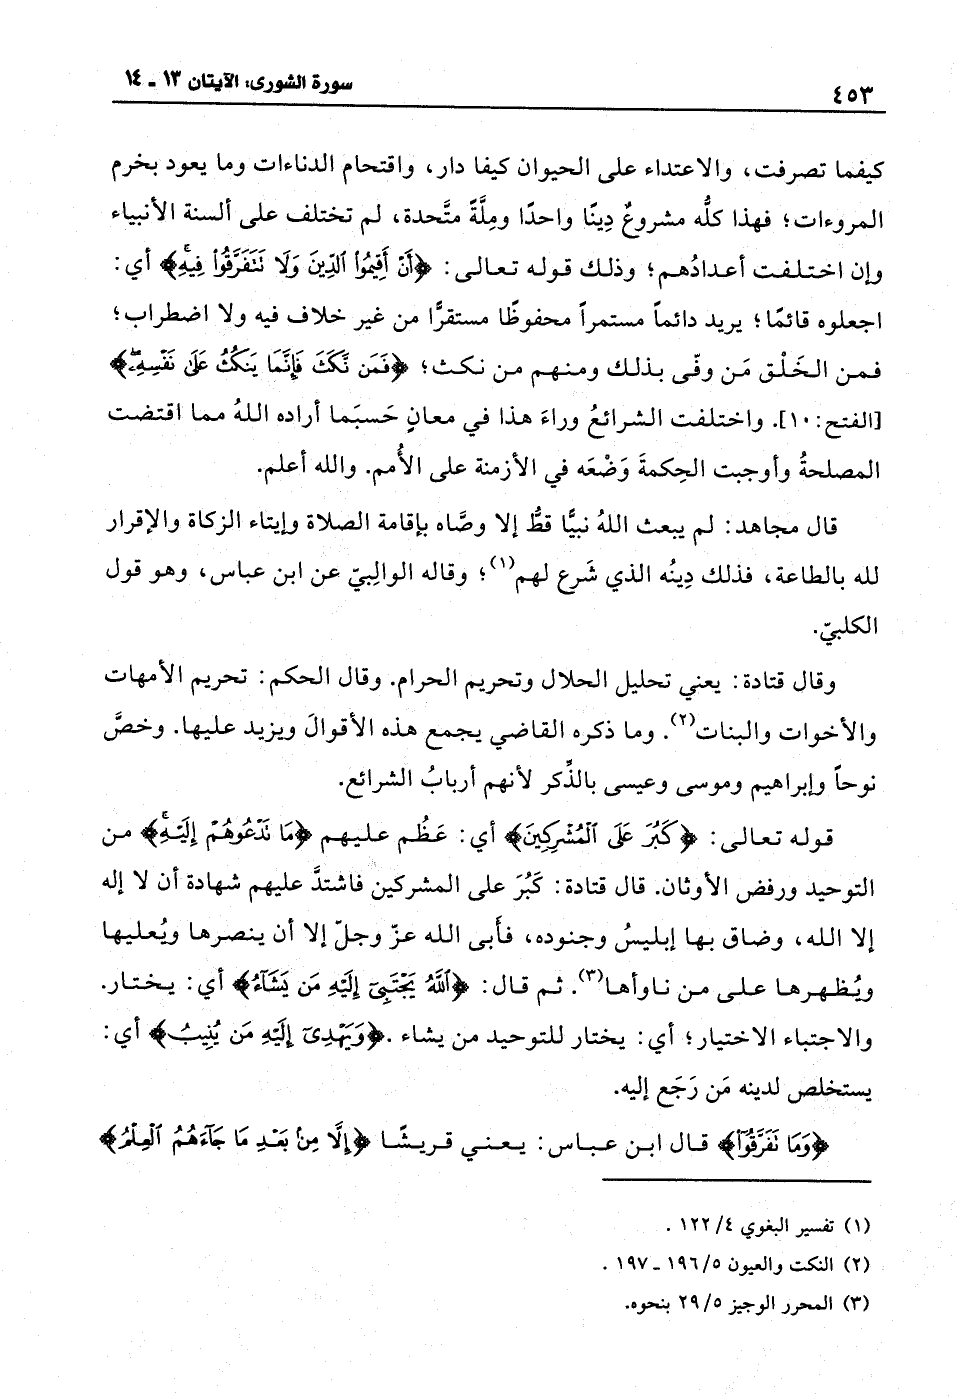 ٤٥٣
سورة الشورى: الآيتان ١٣ ـ ١٤
كيفما تصرفت، والاعتداء على الحيوان كيفا دار، واقتحام الدناءات وما يعود بخرم
المروءات؛ فهذا كلُّه مشروعٌ دِينًا واحدًا ومِلَّةً متَّحدة، لم تختلف على ألسنة الأنبياء
وإن اختلفت أعدادُهم؛ وذلك قوله تعالى: ﴿أَنْ أَقِيمُوا۟ ٱلدِّينَ وَلَا تَتَفَرَّقُوا۟ فِيهِ﴾ أي:
اجعلوه قائمًا؛ يريد دائماً مستمراً محفوظًا مستقرًّا من غير خلاف فيه ولا اضطراب؛
فمن الخَلْق مَن وفّى بذلك ومنهم من نكث؛ ﴿فَمَن نَّكَثَ فَإِنَّمَا يَنكُثُ عَلَىٰ نَفْسِهِۦ﴾
[الفتح:١٠]. واختلفت الشرائعُ وراءَ هذا في معانٍ حَسبَما أراده اللهُ مما اقتضت
المصلحةُ وأوجبت الحِكمةَ وَضْعَه في الأزمنة على الأُمم. والله أعلم.
قال مجاهد: لم يبعث اللهُ نبيًّا قطُّ إلا وصَّاه بإقامة الصلاة وإيتاء الزكاة والإقرار
لله بالطاعة، فذلك دِينُه الذي شَرع لهم(١)؛ وقاله الوالِبيّ عن ابن عباس، وهو قول
الكلبيّ.
وقال قتادة: يعني تحليل الحلال وتحريم الحرام. وقال الحكم: تحريم الأمهات
والأخوات والبنات(٢). وما ذكره القاضي يجمع هذه الأقوالَ ويزيد عليها. وخصَّ
نوحاً وإبراهيم وموسى وعيسى بالذِّكر لأنهم أربابُ الشرائع.
قوله تعالى: ﴿كَبُرَ عَلَى ٱلْمُشْرِكِينَ﴾ أي: عَظُم عليهم ﴿مَا تَدْعُوهُمْ إِلَيْهِ﴾ من
التوحيد ورفض الأوثان. قال قتادة: كَبُرَ على المشركين فاشتدَّ عليهم شهادة أن لا إله
إلا الله، وضاق بها إبليسُ وجنوده، فأَبى الله عزّ وجلّ إلا أن ينصرها ويُعليها
ويُظهرها على من ناوأها(٣). ثم قال: ﴿ٱللَّهُ يَجْتَبِىٓ إِلَيْهِ مَن يَشَآءُ﴾ أي: يختار.
والاجتباء الاختيار؛ أي: يختار للتوحيد من يشاء .﴿وَيَهْدِىٓ إِلَيْهِ مَن يُنِيبُ﴾ أي:
يستخلص لدينه مَن رَجَع إليه.
﴿وَمَا تَفَرَّقُوٓا۟﴾ قال ابن عباس: يعني قريشًا ﴿إِلَّا مِنۢ بَعْدِ مَا جَآءَهُمُ ٱلْعِلْمُ﴾
(١) تفسير البغوي ٤/ ١٢٢ .
(٢) النكت والعيون ٥/ ١٩٦ ـ ١٩٧ .
(٣) المحرر الوجيز ٥/ ٢٩ بنحوه.